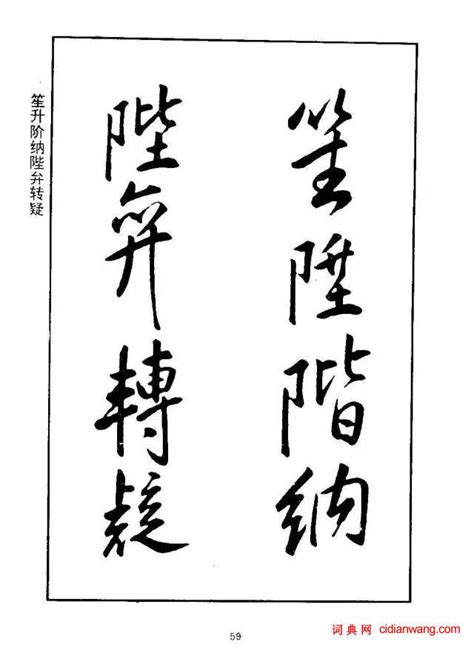 笙陞階納
陛弁轉疑
笙升阶纳陛弁转疑
59
词典网 cidianwang.com